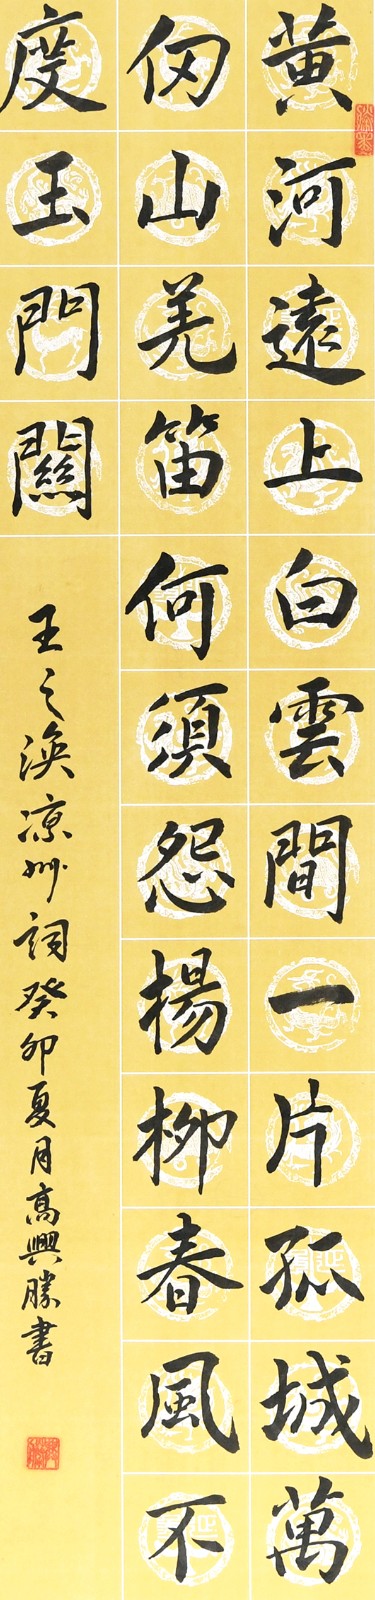 黄河遠上白雲間一片孤城萬
仞山羌笛何須怨楊柳春風不
度玉門關
王之渙涼州詞癸卯夏月高興勝書